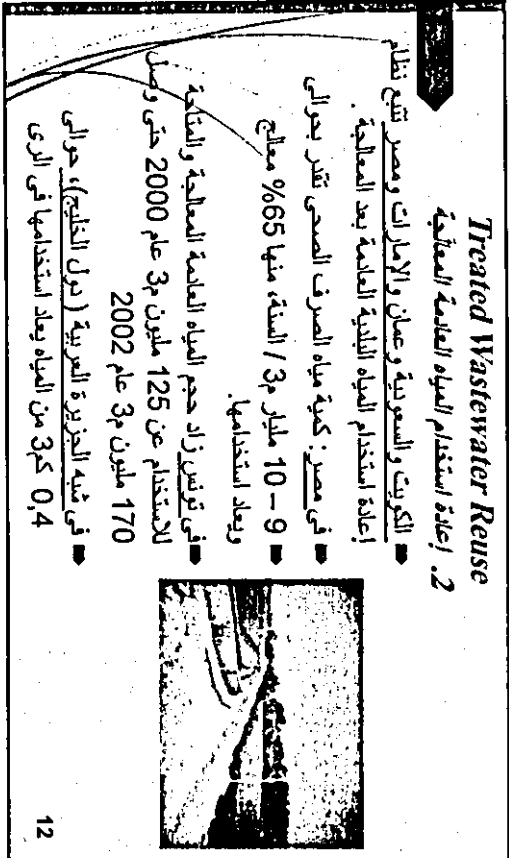 Treated Wastewater Reuse
2. إعادة استخدام المياه العادمة المعالجة
الكويت والسعودية وعمان والإمارات ومصر تتبع نظام
إعادة استخدام المياه البلدية العادمة بعد المعالجة .
في مصر : كمية مياه الصرف الصحى تقدر بحوالى
9 – 10 مليار م3 / السنة، منها 65% معالج
ويعاد استخدامها.
في تونس زاد حجم المياه العادمة المعالجة والمتاحة
للاستخدام عن 125 مليون م3 عام 2000 حتى وصل
170 مليون م3 عام 2002
فى شبه الجزيرة العربية ( دول الخليج)، حوالى
0,4 كم3 من المياه يعاد استخدامها فى الرى
12